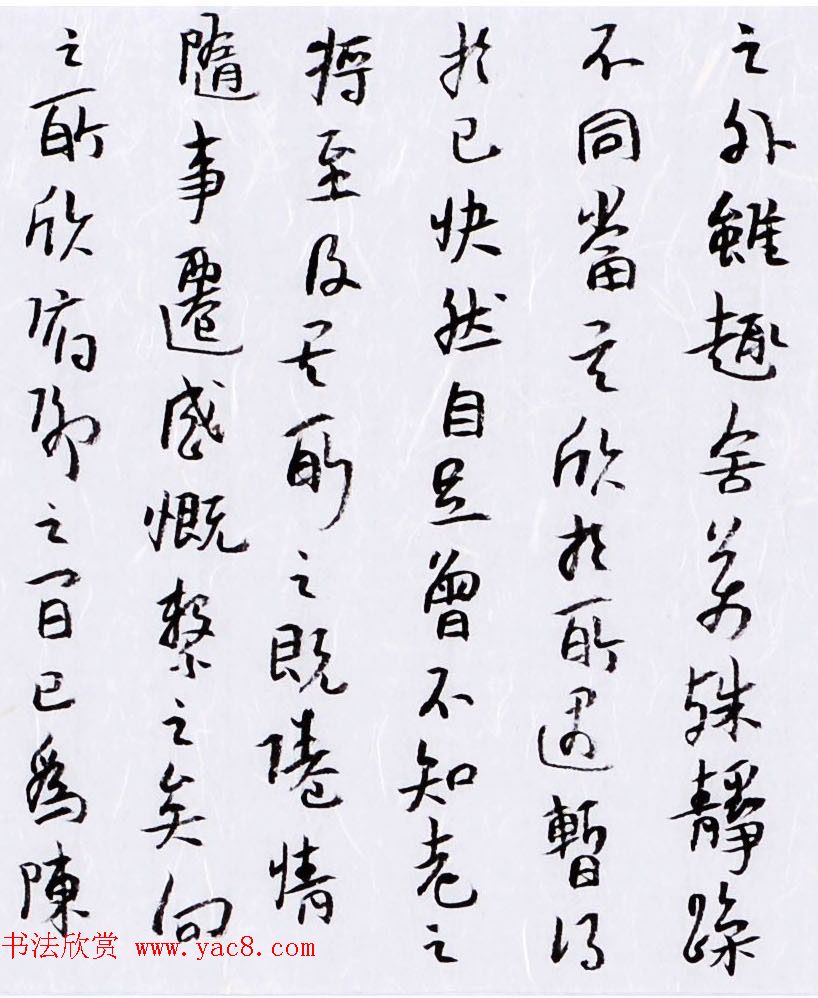 之外雖趣舍萬殊靜躁
不同當其欣於所遇暫得
於己快然自足曾不知老之
將至及其所之既倦情
隨事遷感慨繫之矣向
之所欣俯仰之間已為陳
书法欣赏 www.yac8.com